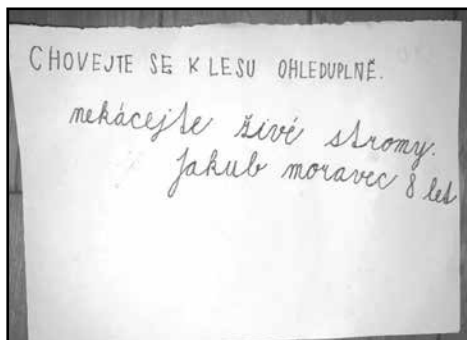 CHOVEJTE SE K LESU OHLEDUPLNĚ.
nekácejte živé stromy.
Jakub moravec 8 let